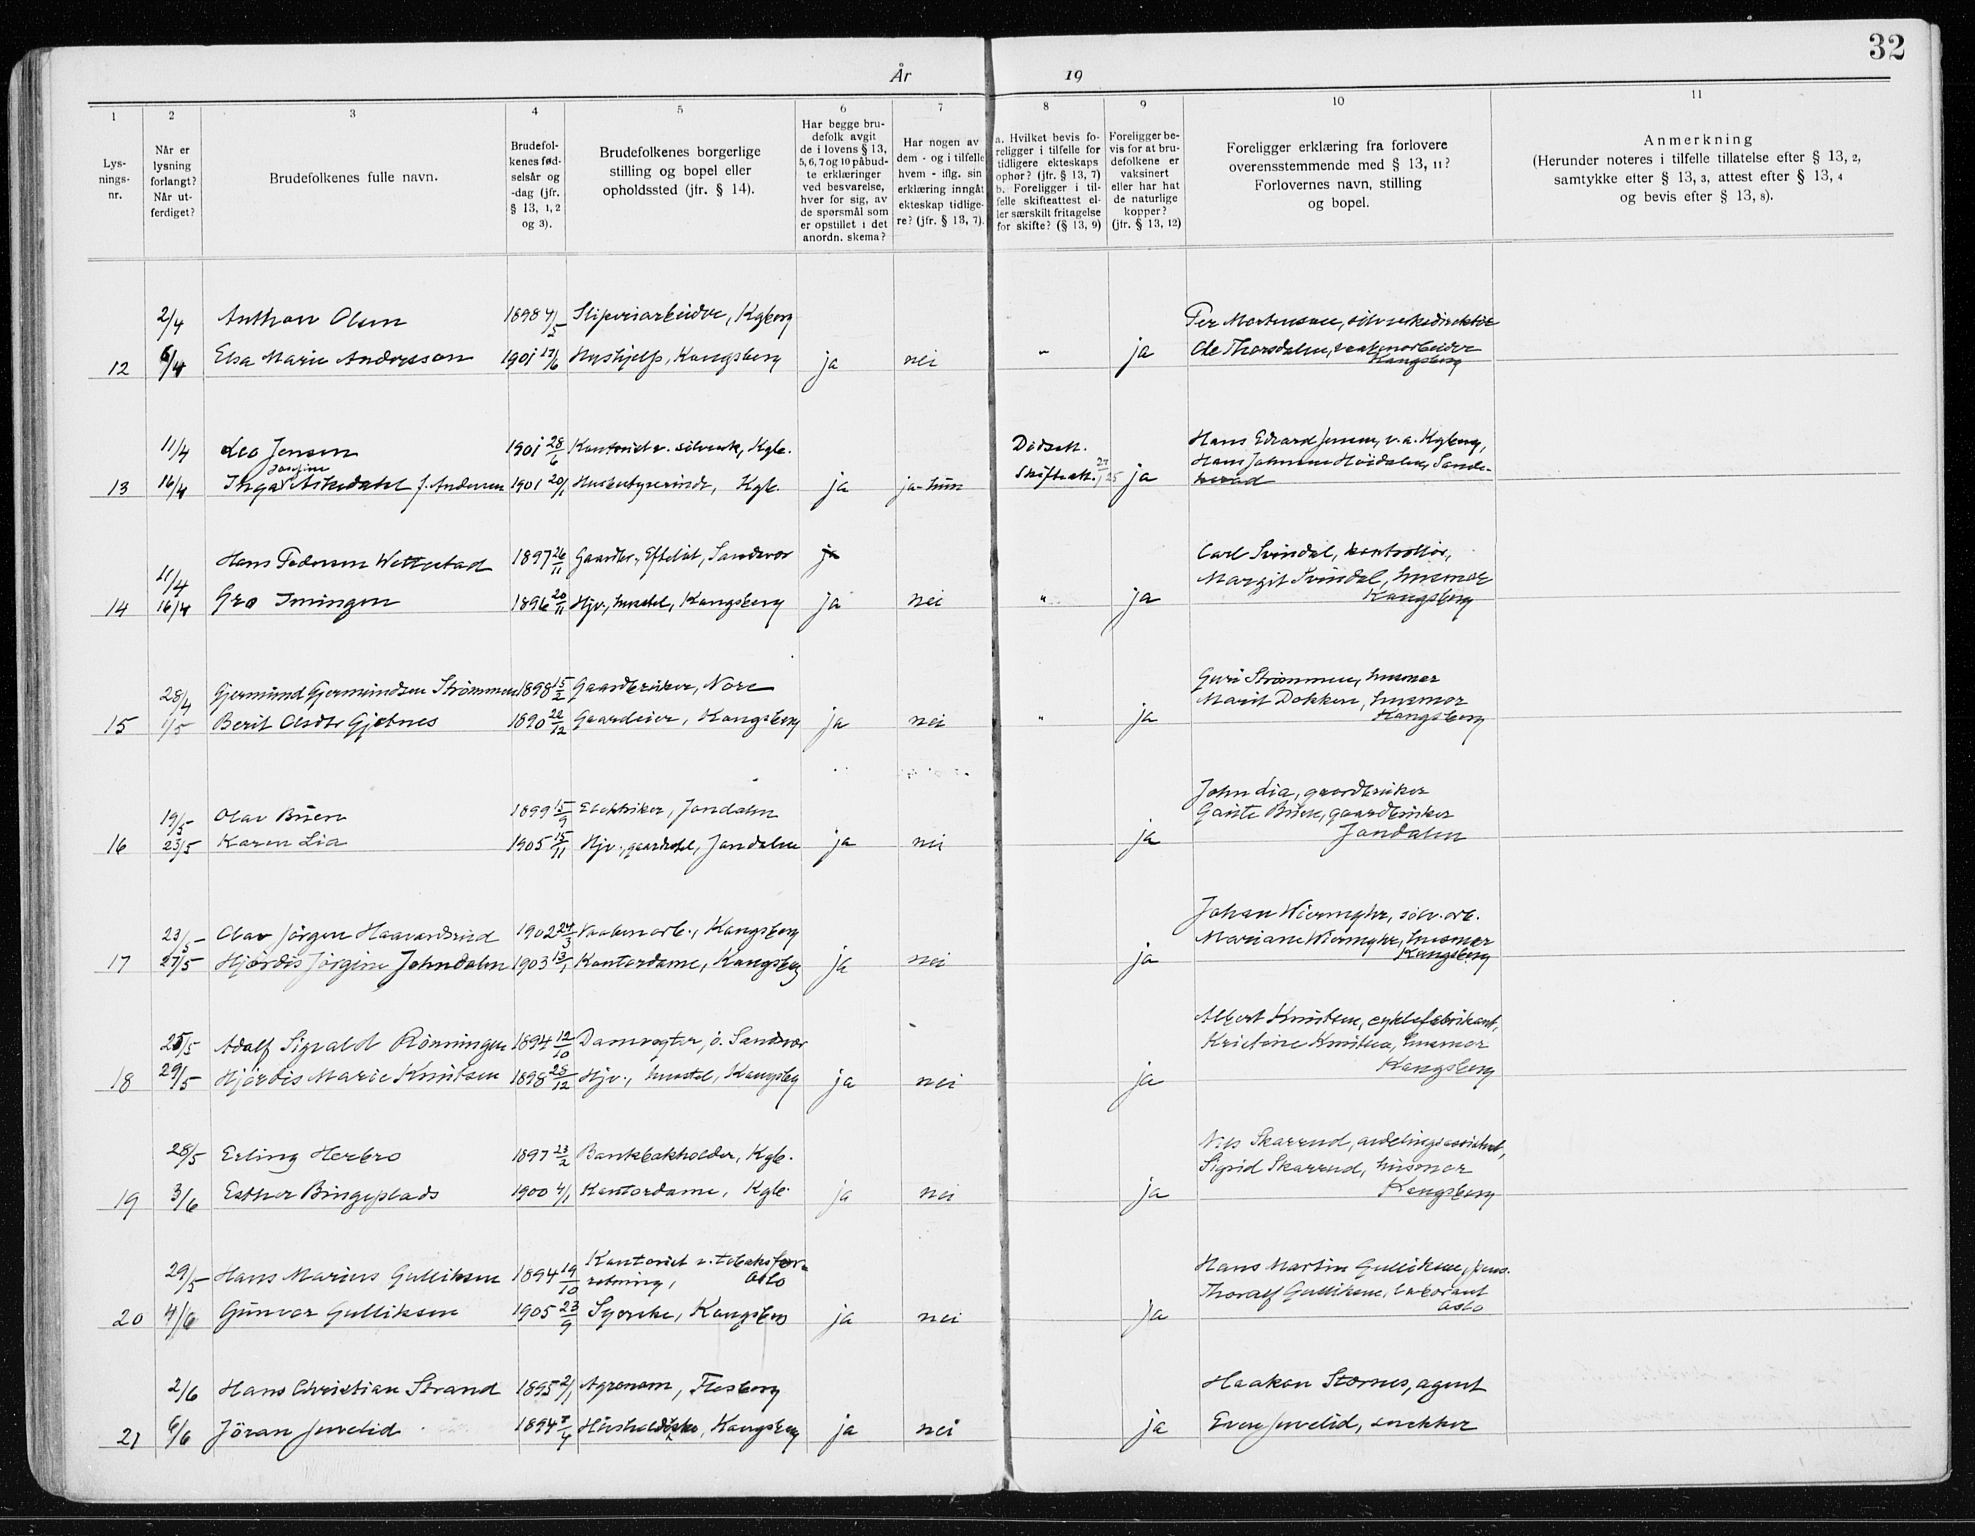 32
År 19
1 2 3 4 5 6 7 8 9 10 11
Lys-
nings-
nr.
Når er
lysning
forlangt?
Når ut-
ferdiget?
Brudefolkenes fulle navn.
Brudefol-
kenes fød-
selsår og
-dag (jfr.
§ 13, 1, 2
og 3).
Brudefolkenes borgerlige
stilling og bopel eller
opholdssted (jfr. § 14).
Har begge bru-
defolk avgit
de i lovens § 13,
5, 6, 7 og 10 påbud-
te erklæringer
ved besvarelse,
hver for sig, av
de spørsmål som
er opstillet i det
anordn. skema?
Har nogen av
dem - og i tilfelle
hvem - iflg. sin
erklæring inngåt
ekteskap tidlige-
re? (jfr. § 13, 7).
a. Hvilket bevis fo-
religger i tilfelle for
tidligere ekteskaps
ophør? (jfr. § 13, 7)
b. Foreligger i til-
felle skifteattest el-
ler særskilt fritagelse
for skifte? (§ 13, 9)
Foreligger be-
vis for at bru-
defolkene er
vaksinert
eller har hat
de naturlige
kopper?
(jfr. § 13, 12)
Foreligger erklæring fra forlovere
overensstemmende med § 13, 11?
Forlovernes navn, stilling
og bopel.
Anmerkning
(Herunder noteres i tilfelle tillatelse efter § 13, 2,
samtykke efter § 13, 3, attest efter § 13, 4
og bevis efter § 13, 8).
2/4 Anthon Olsen 1898 4/5 Sliperiarbeider, Kgberg Per Mortensen,
12 6/4 Elsa Marie Andresson 1901 17/6 Hushjelp, Kongsberg ja nei " ja Ole Thorsdalen,
Kongsberg
11/4 Leo Jensen 1901 28/6 Kontorist v. sølvverk, Kgb. Dødsatt. Hans Edvard Jensen, v.a. Kgberg,
13 16/4 Inga Askedahl f. Andersen 1901 20/1 Husbestyrerinde, Kgb. ja ja-hun Skifteatt. ja Hans Johnsen Høidalen, Sande-
herad
11/4 Hans Pedersen Wettestad 1897 26/11 Gaardbr., Efteløt, Sandsvær ja Carl Svindal, kontrollør,
Margit Svindal, husmor
14 16/4 Gro Imingen 1896 20/11 Hjv., husstel, Kongsberg ja nei " ja Kongsberg
28/4 Gjermund Gjermundsen Strømmen 1898 15/2 Gaardbruker, Nore Guri Strømmen, husmor
Marit Dokken, husmor
15 1/5 Berit Olsdtr Gjetnes 1890 26/12 Gaardeier, Kongsberg ja nei " ja Kongsberg
19/5 Olav Buen 1899 15/9 Elektriker, Jondalen John Lia, gaardbruker
Gaute Buen, gaardbruker
16 23/5 Karen Lia 1905 15/11 Hjv., gaardstel, Jondalen ja nei ja Jondalen
23/5 Olav Jørgen Haavardsrud 1902 24/3 Vaabenarb., Kongsberg Johan Wiermyhr, sølv.arb.
Mariane Wiermyhr, husmor
17 27/5 Hjørdis Jørgine Johndalen 1903 13/1 Kontordame, Kongsberg ja nei ja Kongsberg
25/5 Adolf Sigvald Rønningen 1894 12/10 Damvogter, ø. Sandsvær Albert Knutsen, cyklefabrikant,
Kristine Knutsen, husmor
18 29/5 Hjørdis Marie Knutsen 1898 28/12 Hjv., husstel, Kongsbg ja nei ja Kongsberg
28/5 Erling Herbro 1897 23/2 Bankbokholder, Kgb. Nils Skarrud, avdelingsassistent,
Sigrid Skarrud, husmor
19 3/6 Esther Bingeplads 1900 4/1 Kontordame, Kgb. ja nei ja Kongsberg
29/5 Hans Marius Gulliksen 1894 19/10 Kontorist v. tobaksfor-
retning, Oslo Hans Martin Gulliksen, pens.
Thoralf Gulliksen, laborant
20 4/6 Gunvor Gulliksen 1905 23/9 Syerske, Kongsberg ja nei ja Oslo
2/6 Hans Christian Strand 1895 2/1 Agronom, Flesberg Haakon Stornes, agent
21 6/6 Jøran Juvelid 1894 7/4 Kongsberg ja nei ja Even Juvelid, snekker